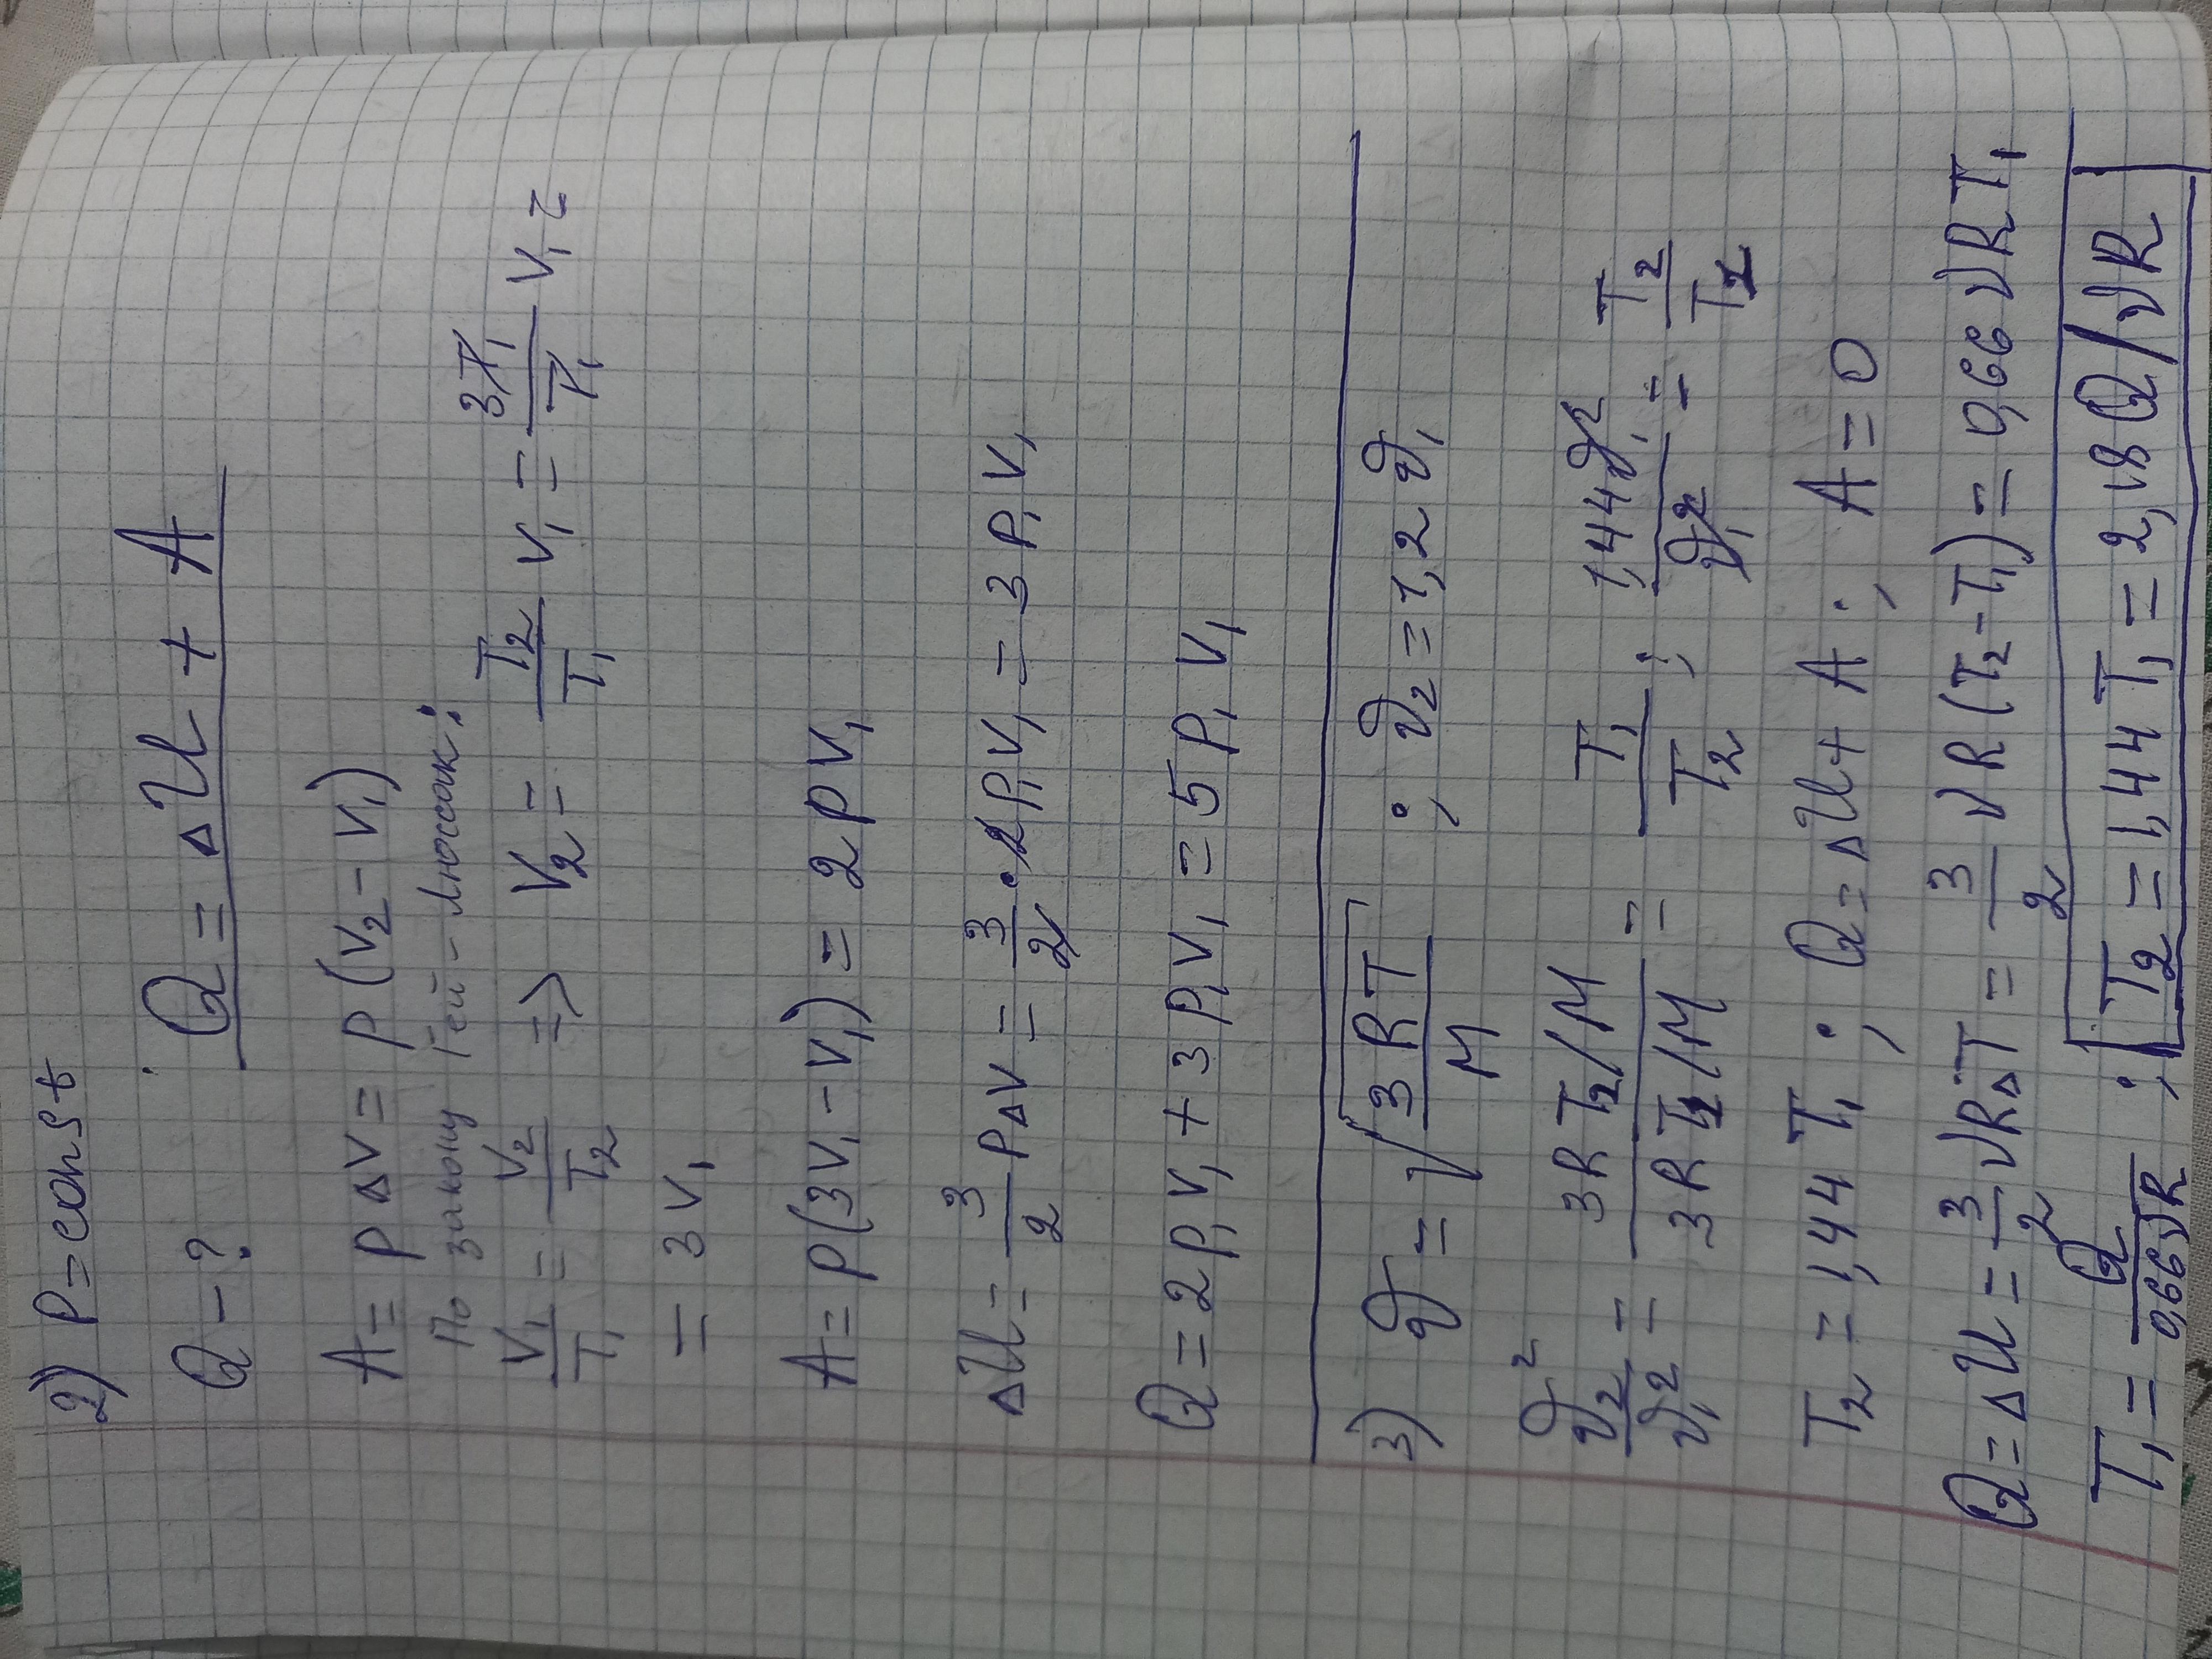 2) P = const
Q - ? Q = ΔU + A
A = PΔV = P(V₂ - V₁)
По закону Гей-Люссак:
V₁/T₁ = V₂/T₂ => V₂ = T₂/T₁ V₁ = 3T₁/T₁ V₁ =
= 3V₁
A = P(3V₁ - V₁) = 2PV₁
ΔU = 3/2 PΔV = 3/2 · 2P₁V₁ = 3P₁V₁
Q = 2P₁V₁ + 3P₁V₁ = 5P₁V₁
3) υ = √(3RT/M) ; υ₂ = 1,2υ₁
υ₂²/υ₁² = (3RT₂/M)/(3RT₁/M) = T₁/T₂ ; 1,44υ₁²/υ₁² = T₂/T₁
T₂ = 1,44T₁ ; Q = ΔU + A ; A = 0
Q = ΔU = 3/2 νRΔT = 3/2 νR(T₂ - T₁) = 0,66νRT₁
T₁ = Q/0,66νR ; T₂ = 1,44T₁ = 2,18Q/νR